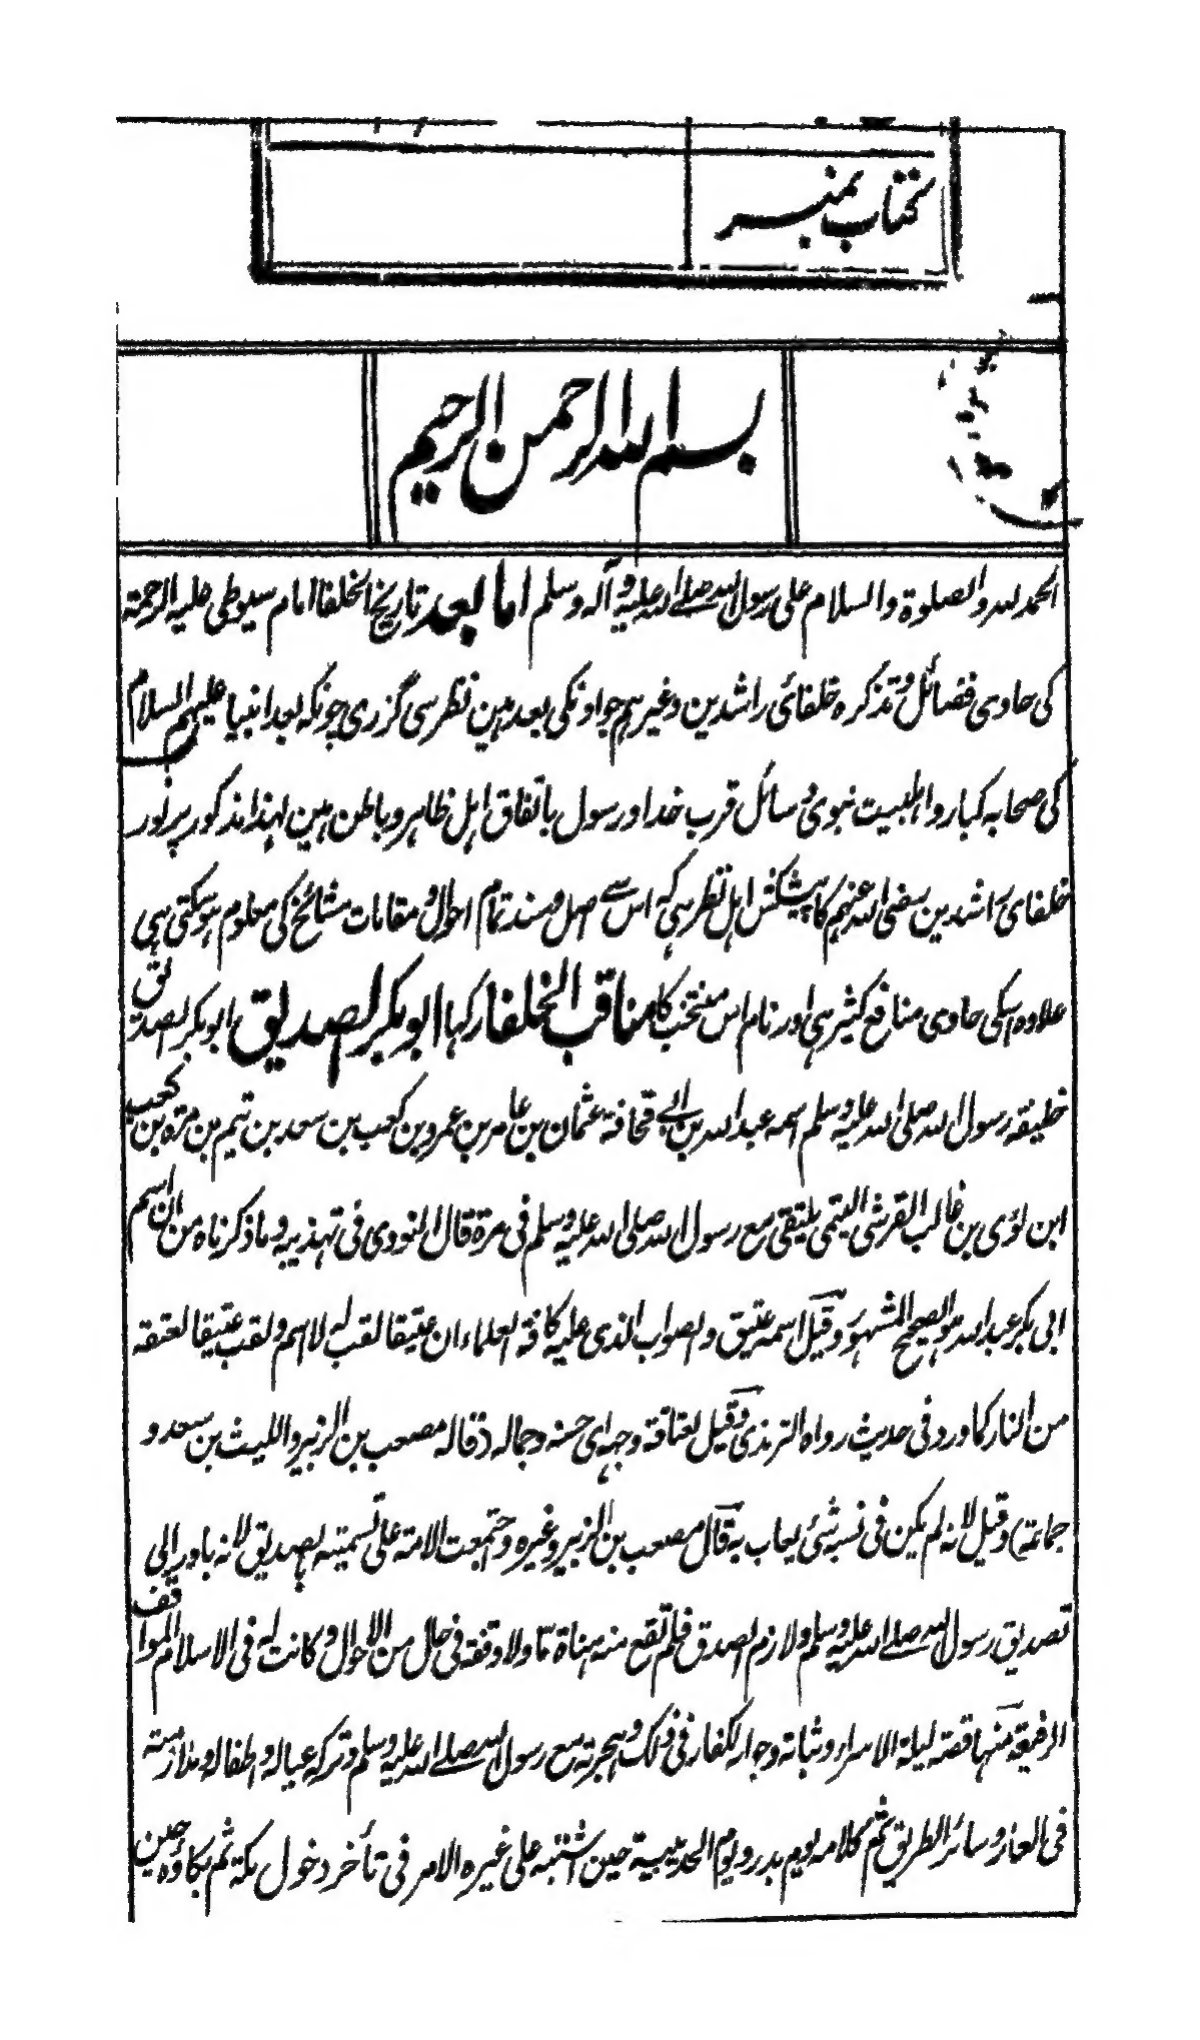 کتاب نمبر
بسم الله الرحمن الرحیم
الحمد لله والصلوة والسلام علی رسول الله صلے الله علیه وآله وسلم اما بعد تاریخ الخلفا امام سیوطی علیه الرحمة
کی حاوی فضائل و تذکره خلفائی راشدین وغیرهم جو اونکی بعد هین نظر سی گزری چونکه بعد انبیا علیهم السلام
کی صحابه کبار و اهلبیت نبوی وسائل قرب خدا و رسول باتفاق اہل ظاهر و باطن هین لهذا مذکور پرنور
خلفای راشدین رضی الله عنهم کا پیشکش اہل نظر ہی که اس سے اصل و سند تمام احوال و مقامات مشائخ کی معلوم ہوسکتی ہی
علاوه اسکی حاوی منافع کثیر ہی اور نام اس منتخب کا مناقب الخلفا رکہا ابو بکر الصدیق ابو بکر الصدیق
خلیفة رسول الله صلی الله علیه وسلم اسمه عبد الله بن ابے قحافة عثمان بن عامر بن عمرو بن کعب بن سعد بن تیم بن مرة بن کعب
ابن لؤی بن غالب القرشی التیمی یلتقی مع رسول الله صلی الله علیه وسلم فی مرة قال النووی فی تهذیبه وما ذکرناه من ان اسم
ابی بکر عبد الله هو الصحیح المشهور وقیل اسمه عتیق والصواب الذی علیه کافة العلماء ان عتیقا لقب له لا اسم ولقب عتیقا لعتقه
من النار کما ورد فی حدیث رواه الترمذی وقیل لعتاقة وجهه ای حسنه وجماله (قاله مصعب بن الزبیر واللیث بن سعد و
جماعة) وقیل لانه لم یکن فی نسبه شئ یعاب به قال مصعب بن الزبیر وغیره واجتمعت الامة علی تسمیته بالصدیق لانه بادر الی
تصدیق رسول الله صلے الله علیه وسلم ولازم الصدق فلم تقع منه هناة ما ولا وقفة فی حال من الاحوال وکانت له فی الاسلام المواقف
الرفیعة منها قصته لیلة الاسراء وثباته وجوابه للکفار فی ذلک وهجرته مع رسول الله صلے الله علیه وسلم وترکه عیاله واطفاله وملازمته
فی الغار وسائر الطریق ثم کلامه یوم بدر ویوم الحدیبیة حین اشتبه علی غیره الامر فی تأخر دخول مکة ثم بکاؤه حین